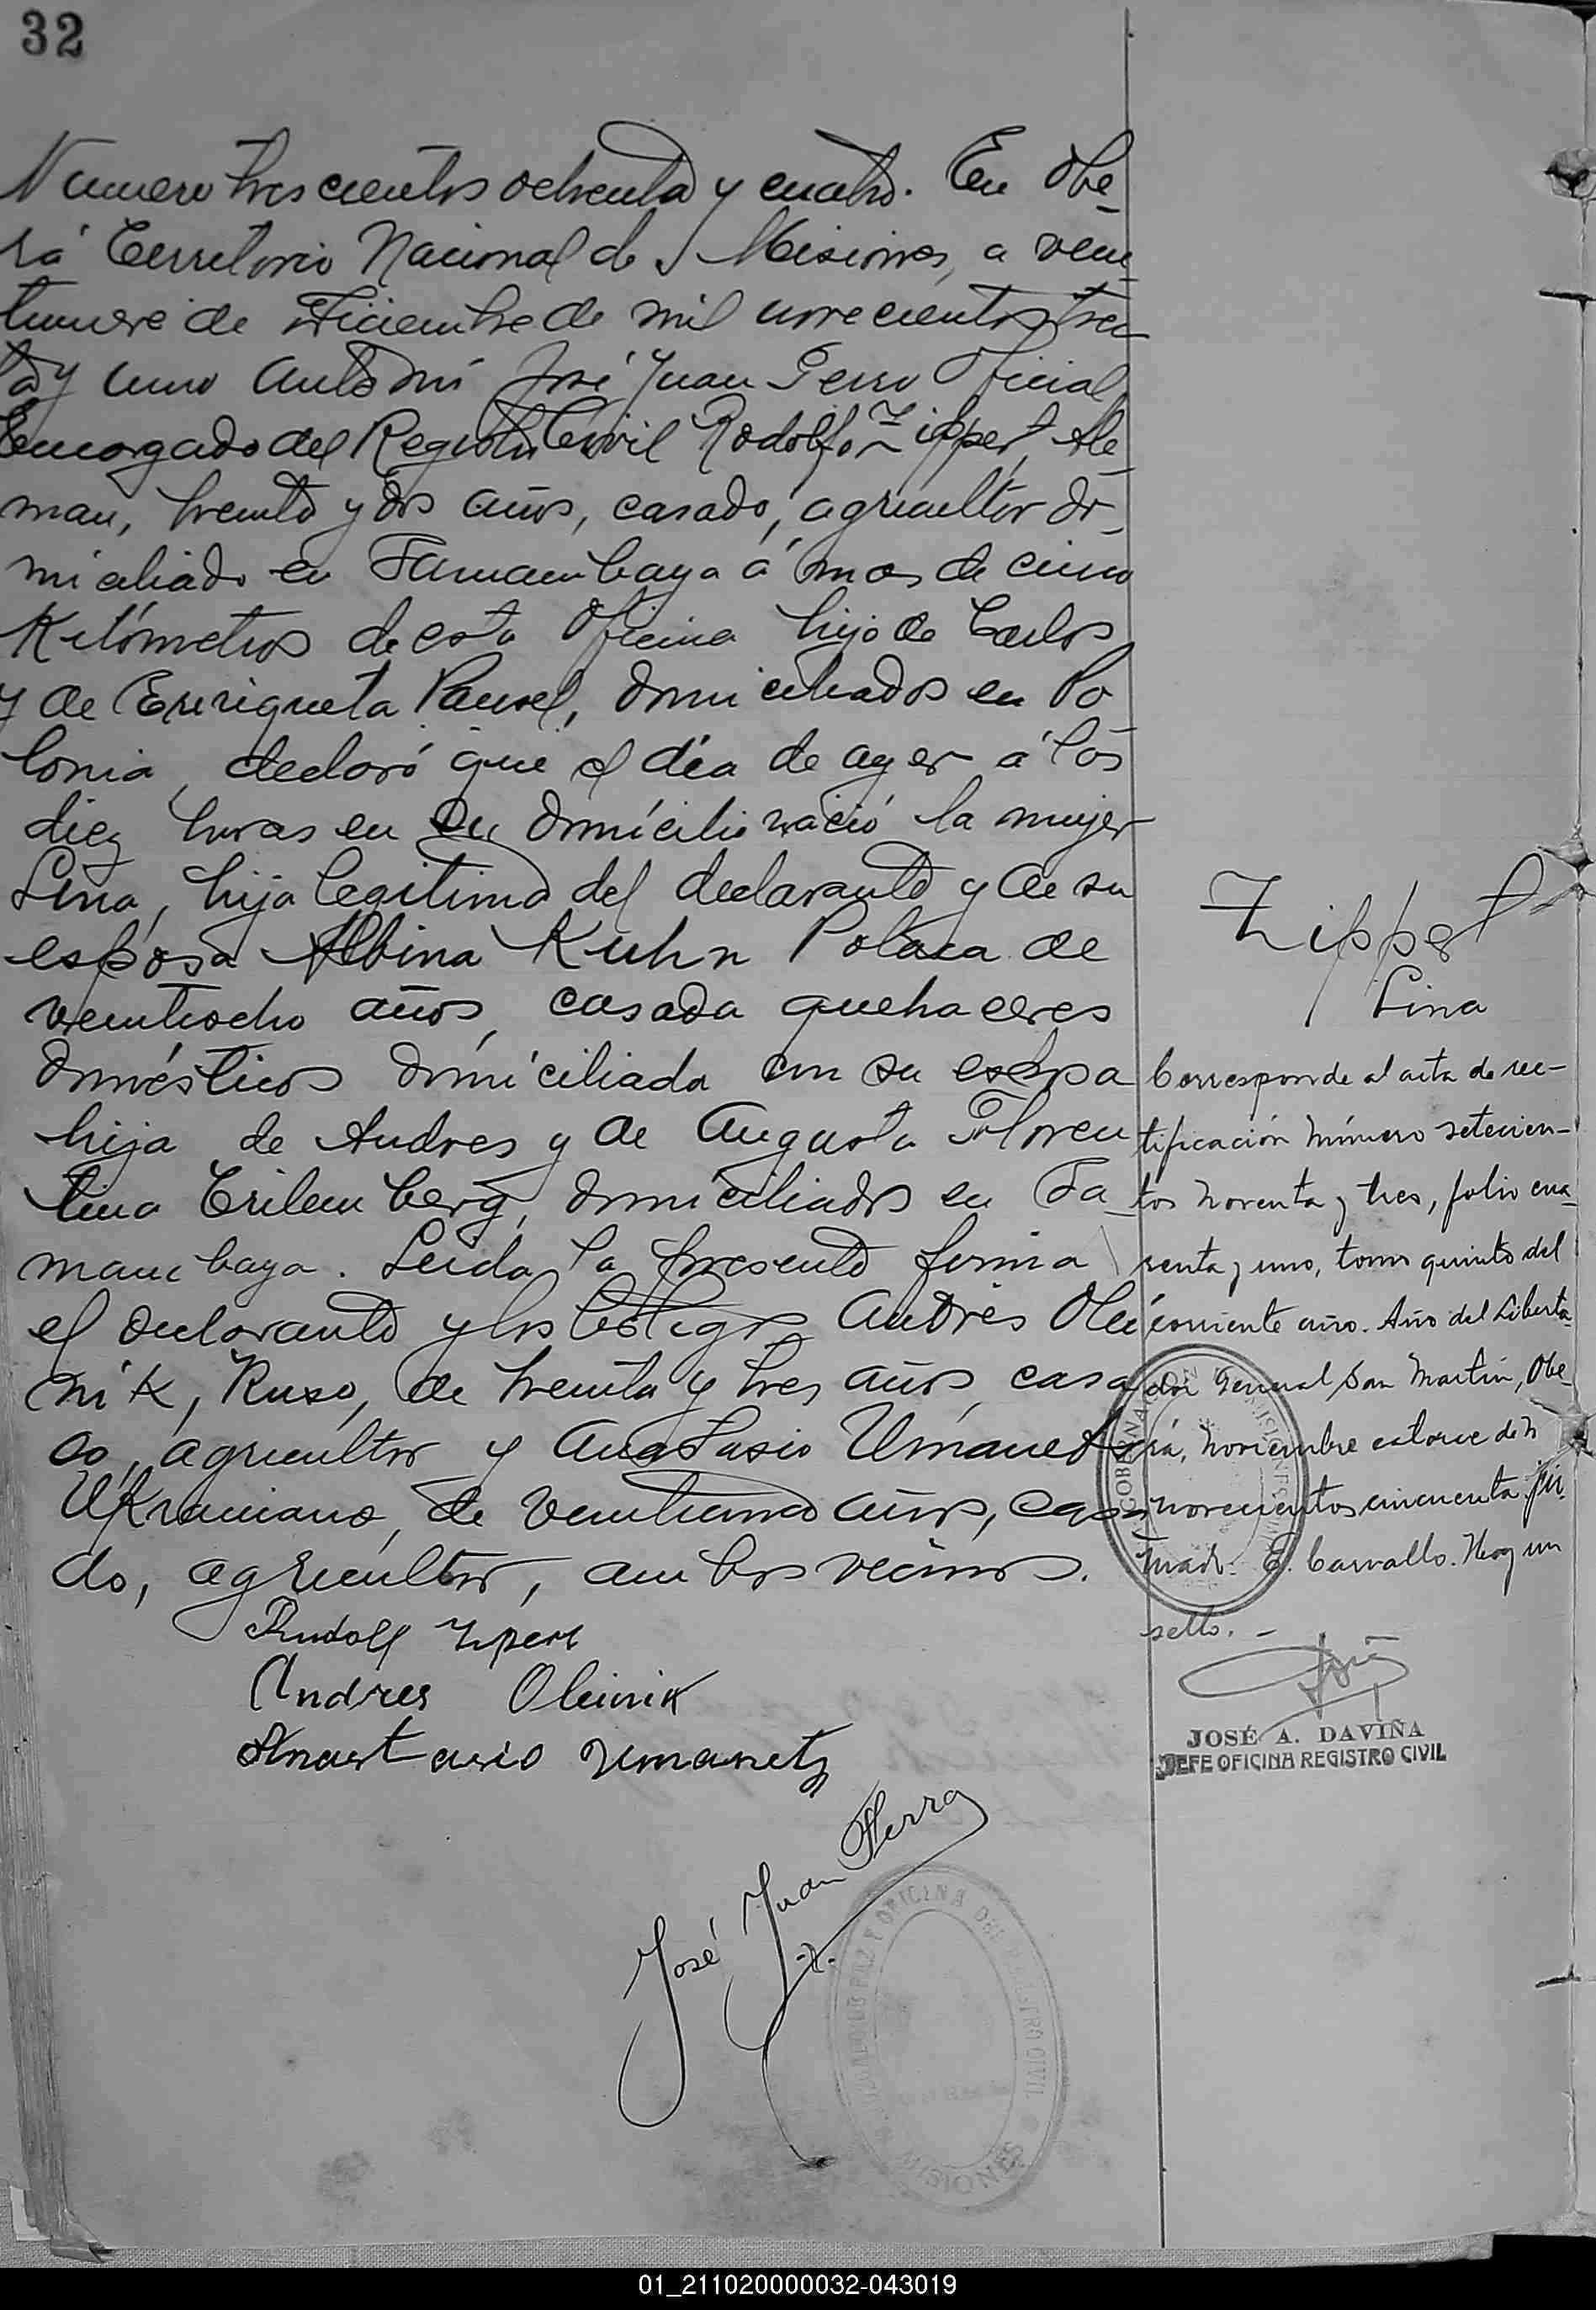 32
Numero trescientos ochenta y cuatro. En Obe-
rá Territorio Nacional de Misiones, a vein-
tinueve de Diciembre de mil novecientos trein
ta y uno ante mi José Juan Ferro Oficial
Encargado del Registro Civil Rodolfo Zippert, Ale-
man, treinta y dos años, casado, agricultor do-
miciliado en Tamambaya á mas de cinco
Kilómetros de esta Oficina hijo de Carlos
y de Enriqueta Pausel, domiciliados en Po
lonia, declaró que el día de ayer á las
diez horas en su domicilio nació la mujer
Lina, hija legitima del declarante y de su
esposa Albina Kuhn Polaca de
veintiocho años, casada quehaceres
domésticos domiciliada con su esposo
hija de Andres y de Augusta Floren
tina Erilemberg, domiciliados en Ta-
mambaya. Leida la presente firma
el declarante y los testigos Andrés Olei
nik, Ruso, de treinta y tres años, casa
do, agricultor y Anastasio Umanetz
Ukraniano, de veintiuno años, casa
do, agricultor, ambos vecinos.
Rudolf Zipert
Andres Oleinik
Anastasio Umanetz
José Juan Ferro
JUZGADO DE PAZ Y OFICINA DEL REGISTRO CIVIL
MISIONES
Zippert
Lina
Corresponde al acta de rec-
tificación número setecien-
tos noventa y tres, folio cua-
renta y uno, tomo quinto del
corriente año. Año del Liberta-
dor General San Martin, Obe-
rá, noviembre catorce de
novecientos cincuenta. fir-
mado. E. Carvallo. Hay un
sello. -
GOBERNACION
MISIONES
JOSÉ A. DAVIÑA
JEFE OFICINA REGISTRO CIVIL
01_211020000032-043019